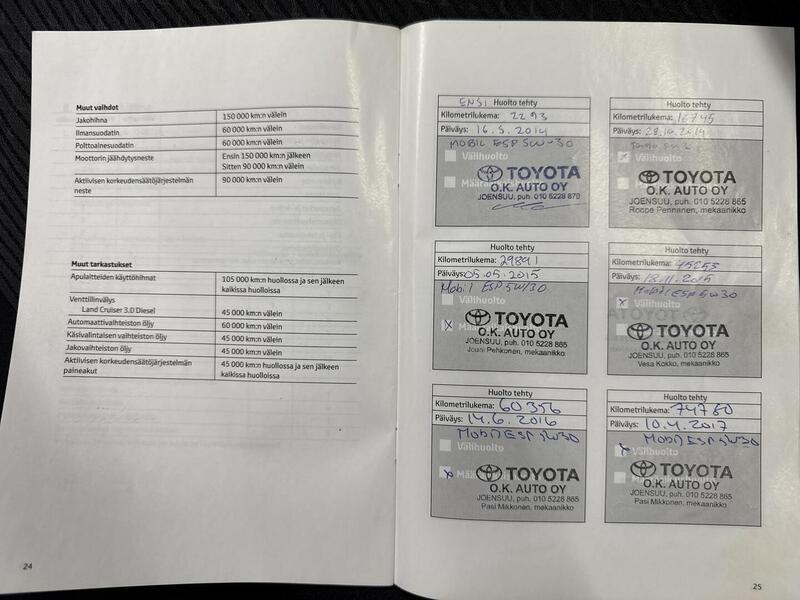 Muut vaihdot
Jakohihna 150 000 km:n välein
Ilmansuodatin 60 000 km:n välein
Polttoainesuodatin 60 000 km:n välein
Moottorin jäähdytysneste Ensin 150 000 km:n jälkeen
Sitten 90 000 km:n välein
Aktiivisen korkeudensäätöjärjestelmän 90 000 km:n välein
neste
Muut tarkastukset
Apulaitteiden käyttöhihnat 105 000 km:n huollossa ja sen jälkeen
kaikissa huolloissa
Venttiilinvälys
Land Cruiser 3.0 Diesel 45 000 km:n välein
Automaattivaihteiston öljy 60 000 km:n välein
Käsivalintaisen vaihteiston öljy 45 000 km:n välein
Jakovaihteiston öljy 45 000 km:n välein
Aktiivisen korkeudensäätöjärjestelmän 45 000 km:n huollossa ja sen jälkeen
paineakut kaikissa huolloissa
24
ENSI Huolto tehty
Kilometrilukema: 2293
Päiväys: 16.5.2014
MOBIL ESP 5W-30
Välihuolto
TOYOTA
O.K. AUTO OY
JOENSUU, puh. 010 5228 870
Huolto tehty
Kilometrilukema: 16745
Päiväys: 28.10.2014
Välihuolto
TOYOTA
O.K. AUTO OY
JOENSUU, puh. 010 5228 865
Roope Pennanen, mekaanikko
Huolto tehty
Kilometrilukema: 29891
Päiväys: 05.05.2015
Mobil ESP 5W/30
Välihuolto
X
TOYOTA
O.K. AUTO OY
JOENSUU, puh. 010 5228 865
Jouni Pehkonen, mekaanikko
Huolto tehty
Kilometrilukema: 45253
Päiväys: 18.11.2015
Mobil ESP 5W30
X Välihuolto
TOYOTA
O.K. AUTO OY
JOENSUU, puh. 010 5228 865
Vesa Kokko, mekaanikko
Huolto tehty
Kilometrilukema: 60356
Päiväys: 14.6.2016
Mobil ESP 5W30
Välihuolto
X
TOYOTA
O.K. AUTO OY
JOENSUU, puh. 010 5228 865
Pasi Mikkonen, mekaanikko
Huolto tehty
Kilometrilukema: 74760
Päiväys: 10.4.2017
Mobil ESP 5W30
X Välihuolto
TOYOTA
O.K. AUTO OY
JOENSUU, puh. 010 5228 865
Pasi Mikkonen, mekaanikko
25